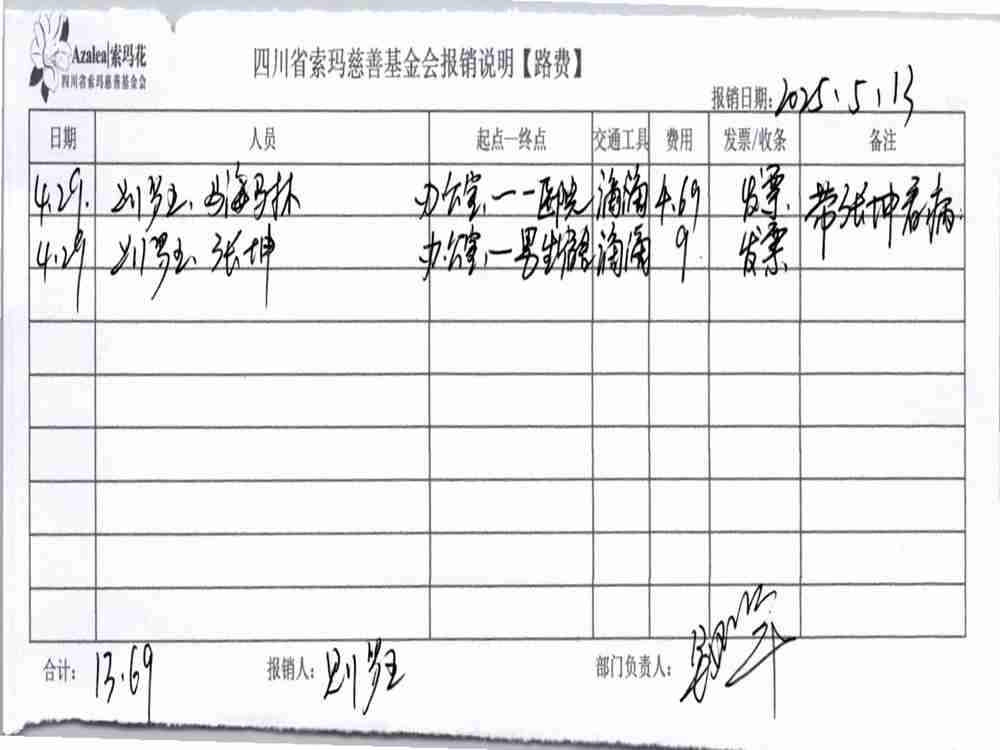 Azalea|索玛花
四川省索玛慈善基金会
四川省索玛慈善基金会报销说明【路费】
报销日期：2025.5.13
日期 人员 起点—终点 交通工具 费用 发票/收条 备注
4.29. 刘罗玉、马海马林 办公室——医院 滴滴 4.69 发票 带张坤看病.
4.29 刘罗玉 张坤 办公室—男生宿舍 滴滴 9 发票
合计：13.69
报销人：刘罗玉
部门负责人：